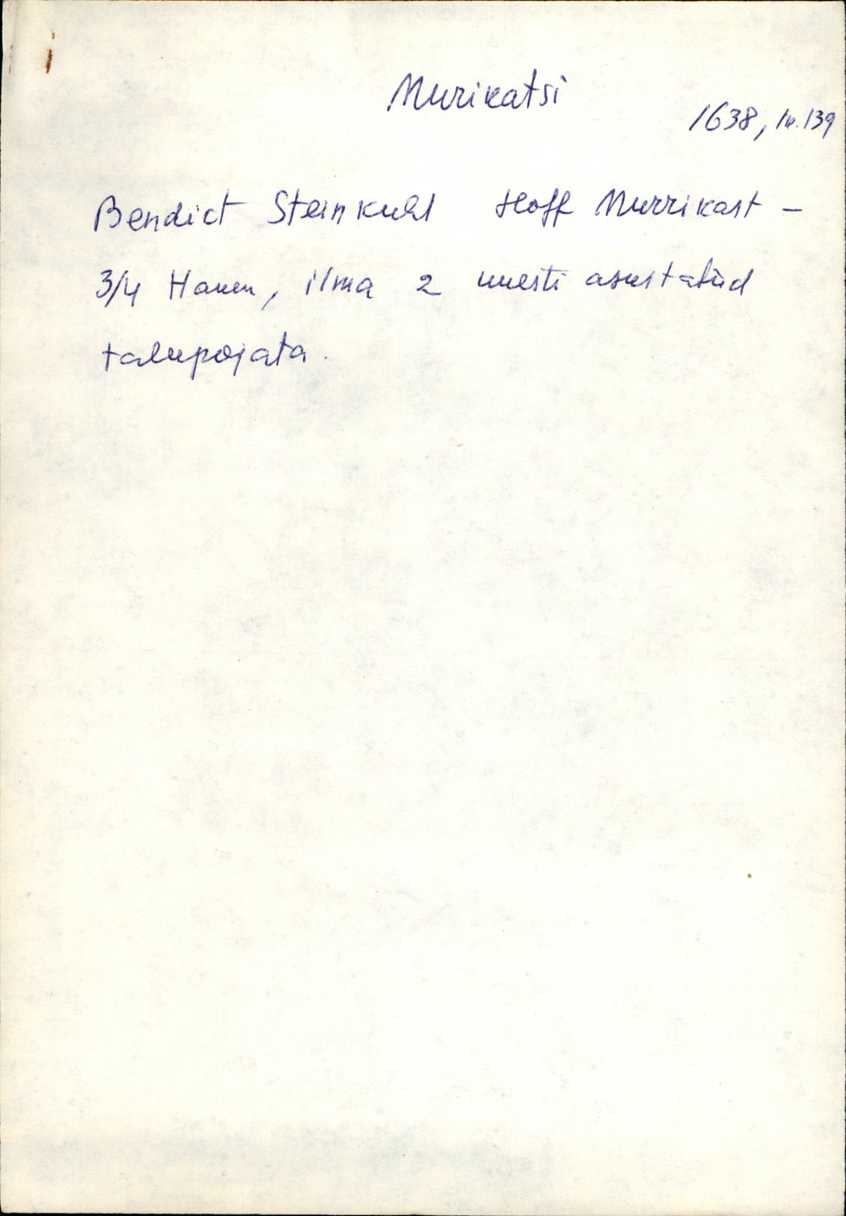 Murikatsi
1638, lk. 139
Bendict Steinkuhl Hoff Murrikast -
3/4 Haken, ilma 2 uuesti asustatud
talupojata.